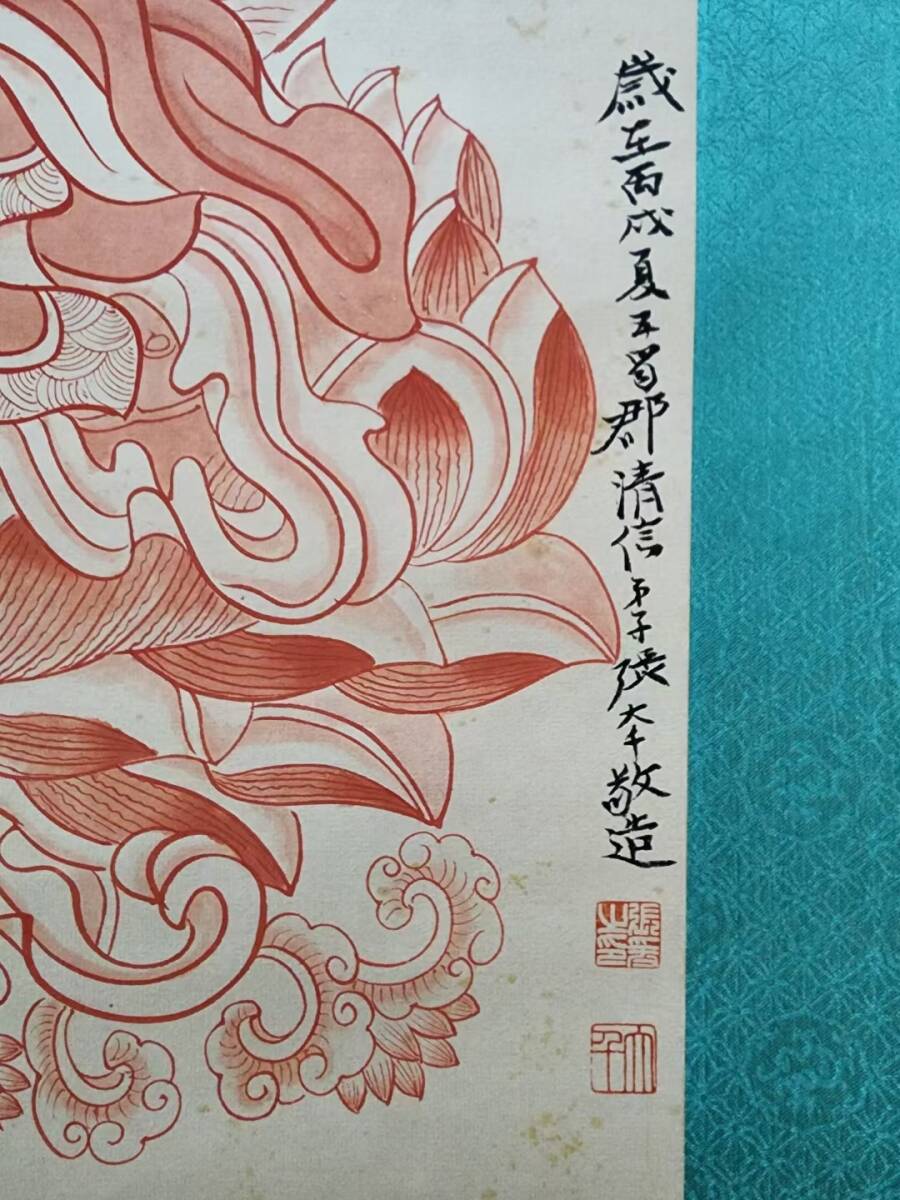 歲在丙戌夏五蜀郡清信弟子張大千敬造
張爰之印
大千